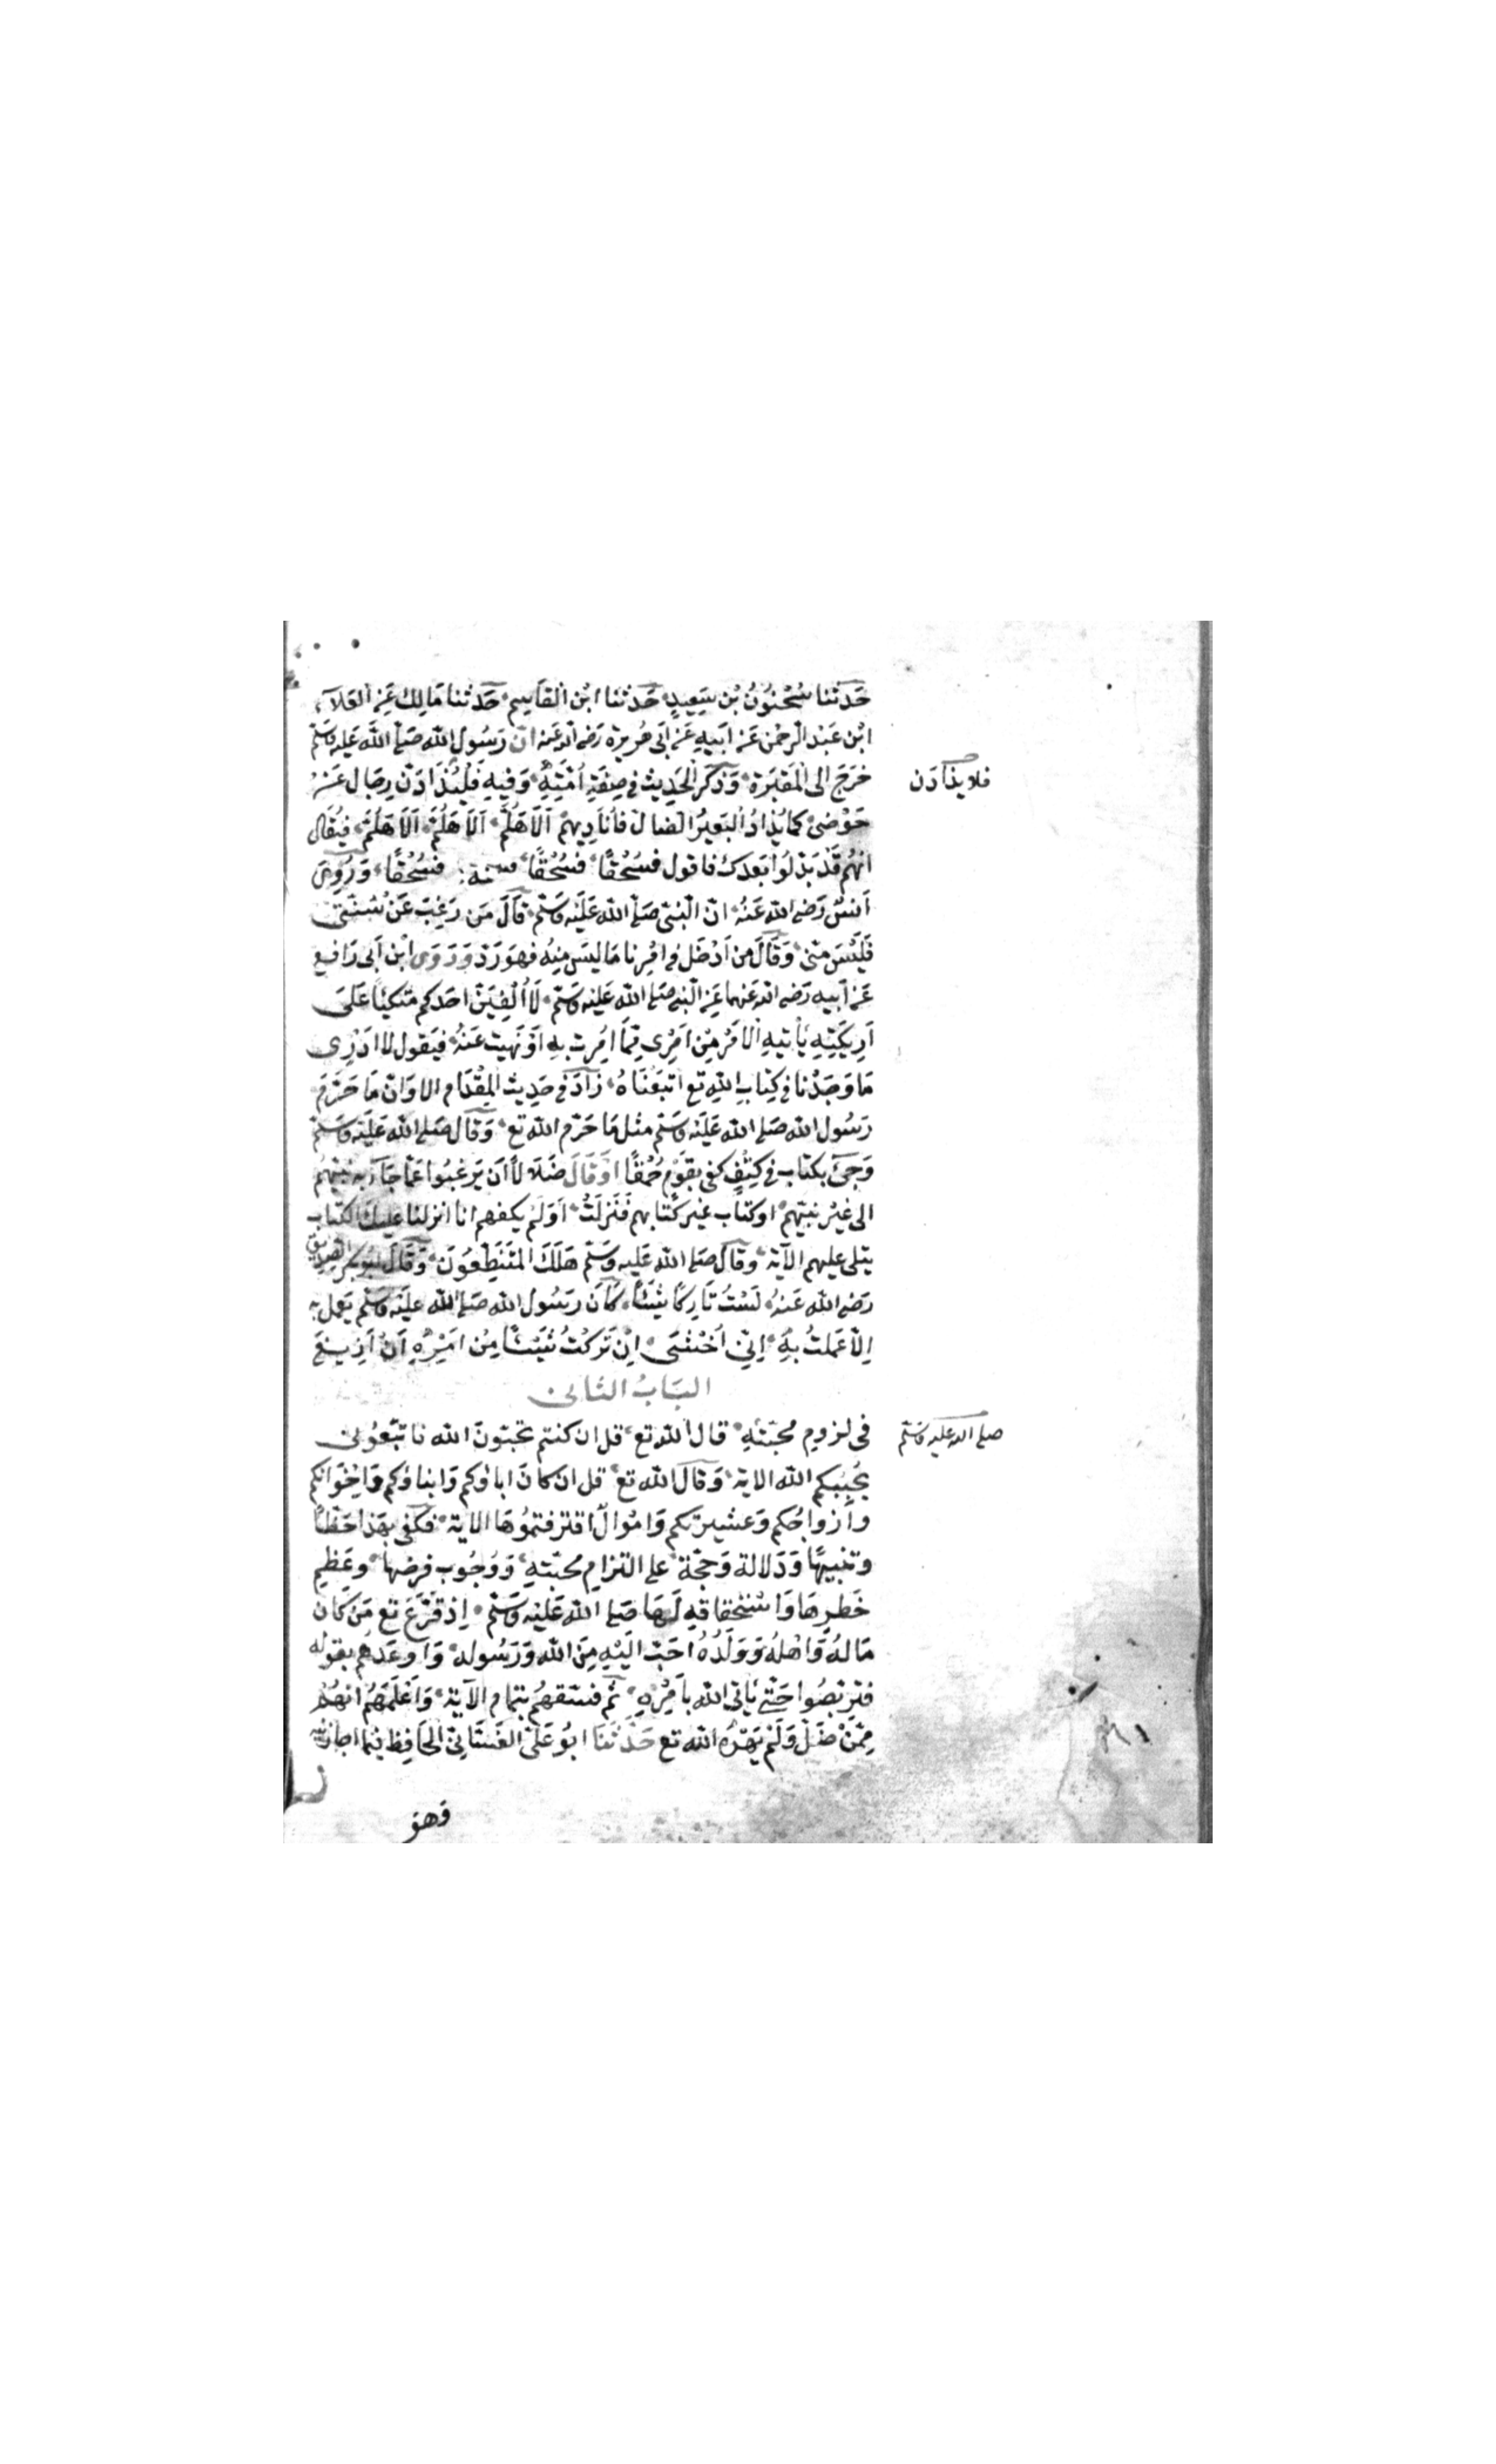 حَدثنا سُحْنُونُ بْن سَعِيدٍ حَدثنا ابْن القَاسِم حَدثنا مَالِك عَنِ العَلآء
ابْن عَبْد الرحْمن عَنْ اَبيهِ عَنْ اَبى هُريرة رَضى الله عَنه انّ رَسُول الله صَلّى الله عَليه وسَلّم
خَرَجَ الى المَقبَرَة وَذكَر الحَدِيث فى صِفَةِ اُمَّتِهِ وَفيهِ فَلَيُذَادَنّ رِجَال عَنْ
حَوْضى كما يُذادُ البَعِيرُ الضال فأنادِيهمْ اَلاَ هَلُمّ اَلاَ هَلُمّ اَلاَ هَلُمّ فيُقال
انهُم قَدْ بَدلُوا بَعدك فاقول فسُحْقًا فسُحْقًا فسُحْقًا وَرَوَى
اَنسٌ رَضى الله عَنهُ انّ النبىّ صَلى الله عَلَيْه وسَلّم قَالَ مَن رَغِبَ عَنْ سُنّتى
فَلَيْسَ مِنّى وَقَالَ مَن اَدْخَل فى امْرِنا مَا لَيسَ مِنهُ فهوَ رَدّ وَرَوَى ابْن اَبى رَافِع
عَنْ اَبيه رَضى الله عَنهما عَنِ النبى صَلى الله عَليْه وسَلّم لَا اُلْفِيَنّ احَدكم متّكئًا عَلى
اَرِيكَتِهِ يَأتيهِ الامْرُ مِنْ اَمْرِى مِمّا اُمِرت بهِ اَوْ نَهَيت عَنهُ فيَقول لا اَدْرِى
مَا وَجَدْنا فى كِتابِ اللهِ تع اتّبَعْنَاهُ زَادَ فى حَدِيث المِقْدَام الا وَانّ مَا حَرّمَ
رَسُول الله صَلى الله عَلَيْه وسَلّم مثل مَا حَرّم الله تع وَقَالَ صَلى الله عَلَيْه وَسَلّم
وَجئ بكتاب فى كِتِفٍ كفى بقَوْم حُمْقًا اوْ قَالَ ضَلَالًا اَن يَرغبُوا عَمّا جَآء به نبيّهُم
الى غَيْر نبيّهِم او كتاب غير كتابهم فَنَزلَتْ اَوَلَمْ يكفهم انا انزلنا عليك الكتاب
يتلى عليهم الآية وقَالَ صَلى الله عَليه وَسَلّم هَلَكَ المتَنَطِّعُونَ وَقَالَ ابو بكر الصديق
رَضى الله عَنهُ لَسْتُ تَارِكًا شَيْئًا كَانَ رَسُول الله صَلى الله عليه وسَلّم يَعمل به
اِلاّ عَمِلتُ بهِ اِنّى اَخْشَى اِنْ تَرَكتُ شَيْئًا مِنْ اَمْرِهِ اَنْ اَزِيغَ
البَابُ الثانى
فى لزومِ محبّتهِ قال الله تع قل ان كنتم تحبّونَ الله فاتّبعُونى
يُحْبِبْكم الله الاية وَقَالَ الله تع قل ان كانَ اباؤكم وَابناؤكم وَاِخْوَانكم
وازواجكم وَعشيرتكم وَامْوالٌ اقترفتمُوهَا الاية فكَفى بهَذا حَظًّا
وَتنبيهًا وَدَلالة وَحجّة على التزامِ محبّتهِ وَوُجُوب فرضهَا وعَظمِ
خَطرهَا وَاسْتحقاقهِ لَهَا صَلى الله عَليْه وسَلّم اِذ قَرّعَ تع مَن كَان
مَالهُ وَاهْلهُ وَوَلَدُهُ احَبّ اليْهِ مِنَ الله وَرَسُوله وَاوعَدهُم بقوله
فتربّصُوا حَتّى يَاتى الله بأمْرِهِ ثمّ فسّقهُم بتمام الآية وَاَعْلَمَهُم انهُم
مِمّنْ ضَلّ وَلَمْ يَهْدِهِ الله تع حَدّثنَا ابُو عَلىّ الغَسّانىّ الحَافِظ فيما اجازنيه
وَهوَ
فلا يذادَن
صلى الله عليه وسلم